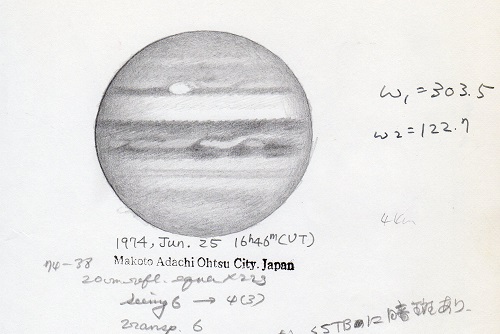 ω₁=303.5
ω2=122.7
1974, Jun. 25 16h46m(UT)
Makoto Adachi Ohtsu City. Japan
74-38
20cm refl. equa ×223
seeing 6 → 4(3)
transp. 6
SSTBに暗斑あり